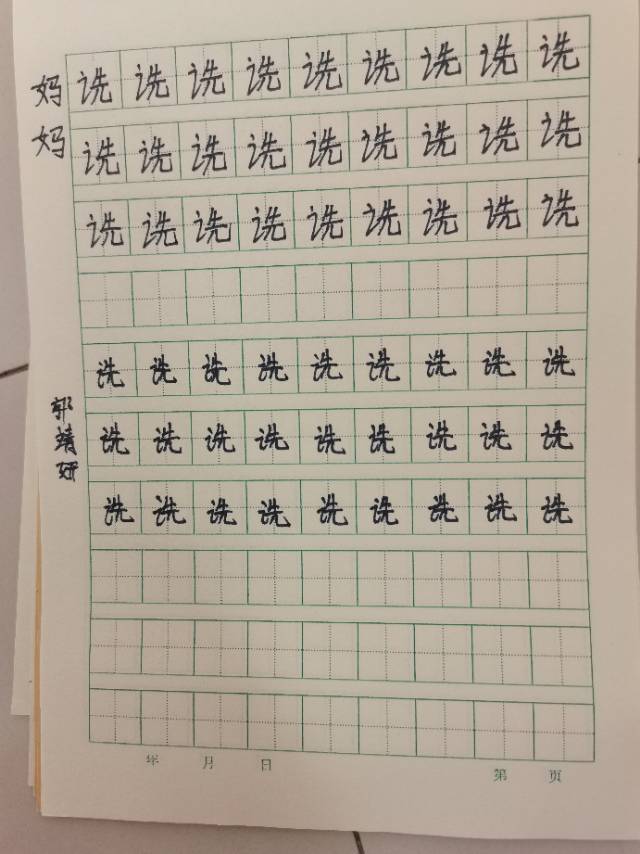 妈妈
诜诜诜诜诜诜诜诜诜
诜诜诜诜诜诜诜诜诜
诜诜诜诜诜诜诜诜诜
郭靖妍
诜诜诜诜诜诜诜诜诜
诜诜诜诜诜诜诜诜诜
诜诜诜诜诜诜诜诜诜
年 月 日 第 页